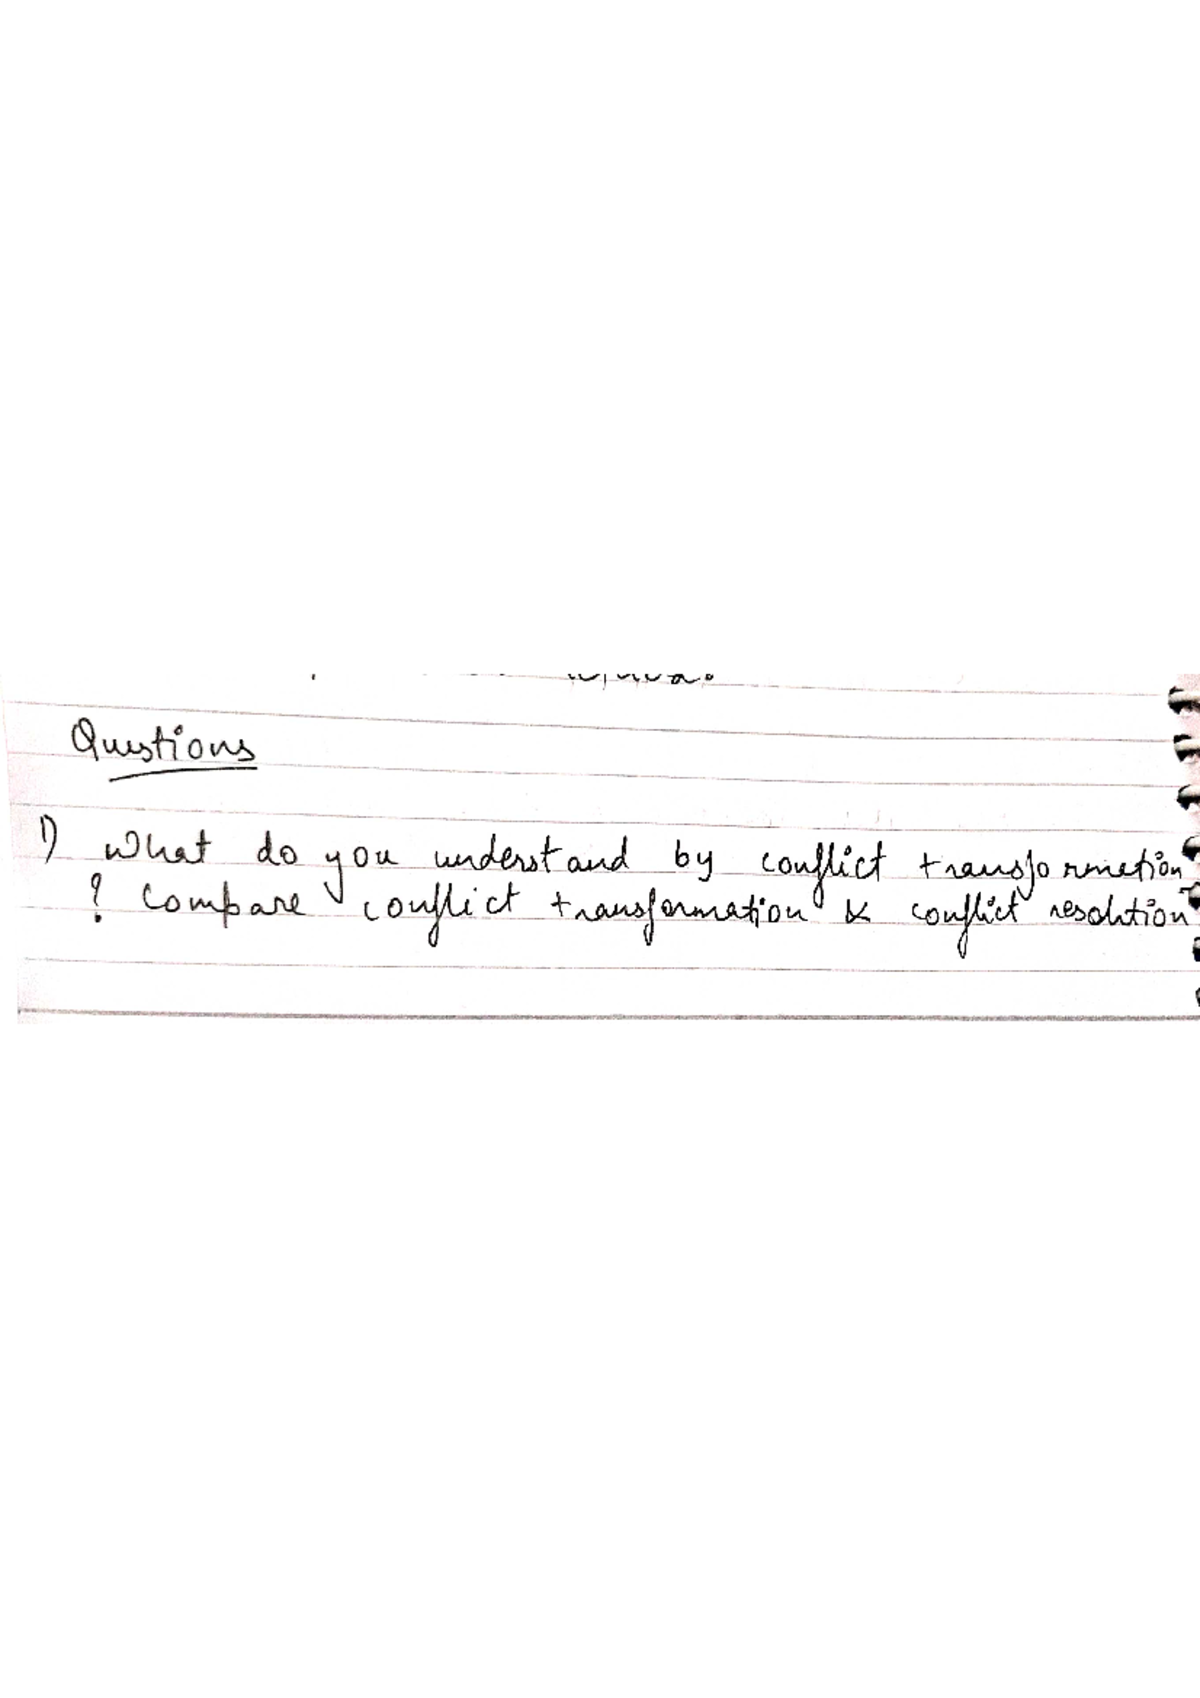 Questions
1) What do you understand by conflict transformation
? Compare conflict transformation & conflict resolution